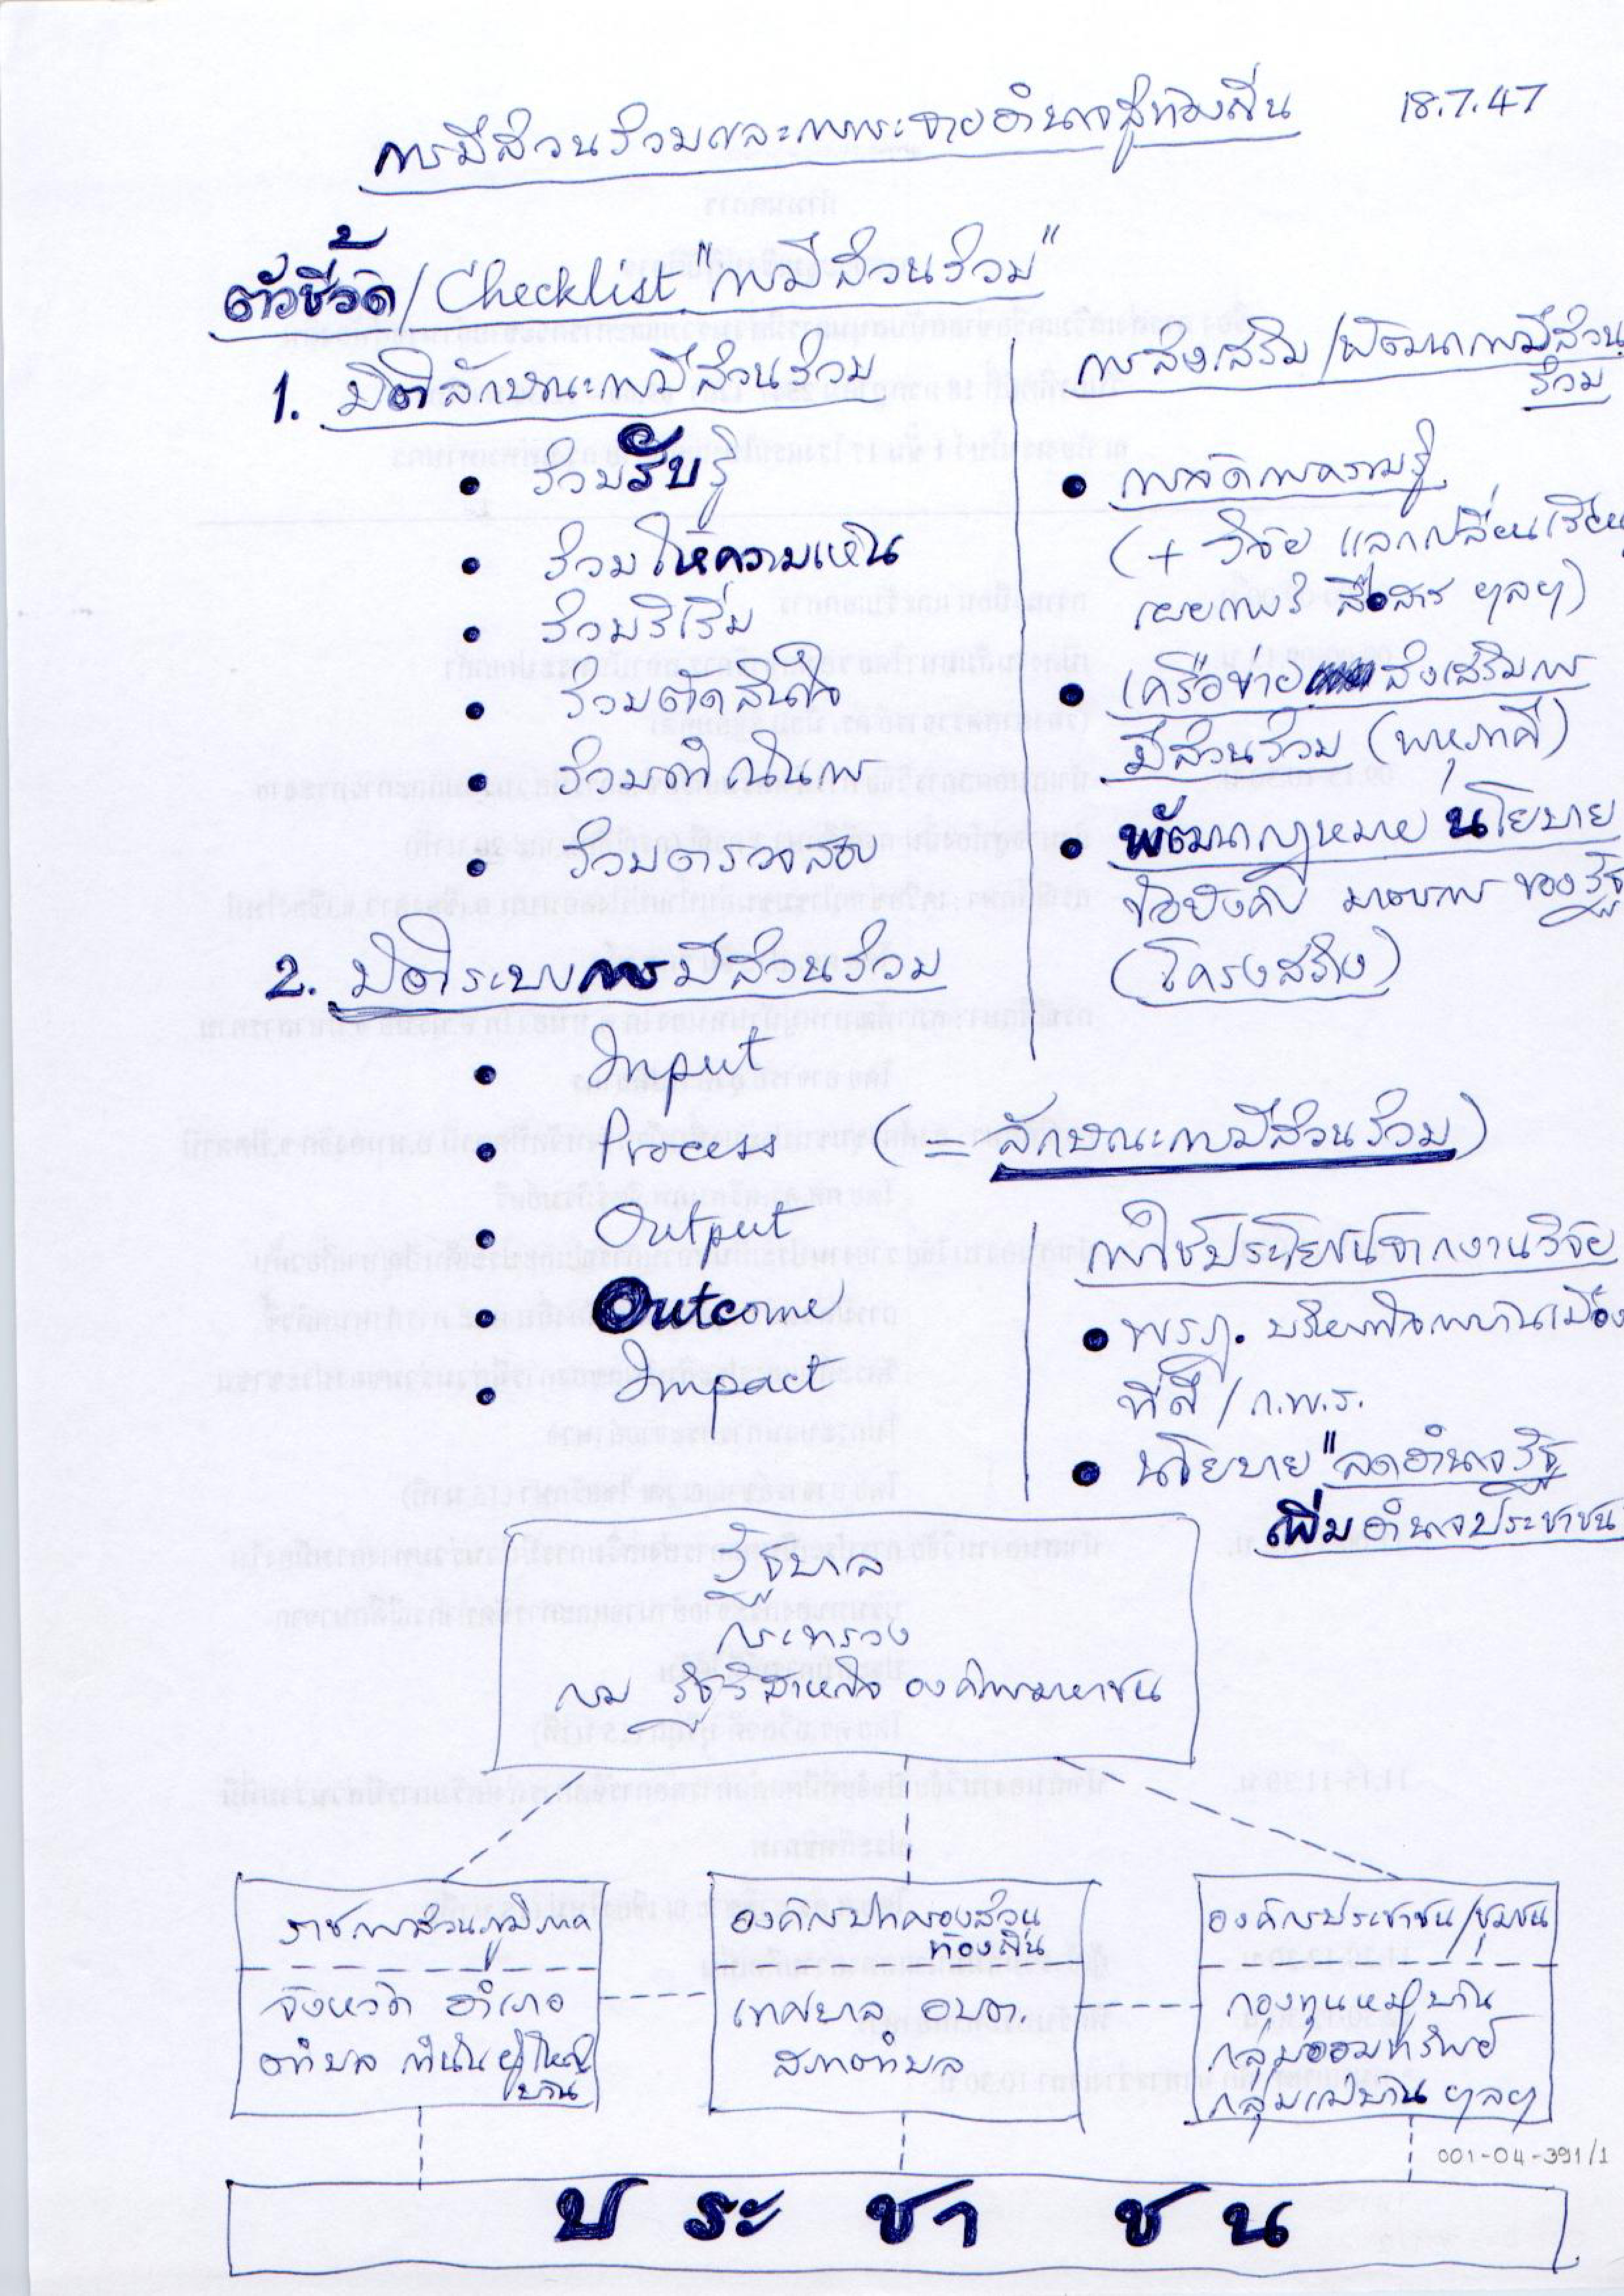 การมีส่วนร่วมและการกระจายอำนาจสู่ท้องถิ่น 18.7.47
ตัวชี้วัด/Checklist "การมีส่วนร่วม"
1. มิติลักษณะการมีส่วนร่วม
• ร่วมรับรู้
• ร่วมให้ความเห็น
• ร่วมริเริ่ม
• ร่วมตัดสินใจ
• ร่วมดำเนินการ
• ร่วมตรวจสอบ
การส่งเสริม/พัฒนาการมีส่วน
ร่วม
• การจัดการความรู้
(+ วิจัย แลกเปลี่ยนเรียนรู้
เผยแพร่ สื่อสาร ฯลฯ)
• เครือข่าย ส่งเสริมการ
มีส่วนร่วม (พหุภาคี)
• พัฒนากฎหมาย นโยบาย
ข้อบังคับ มาตรการ ของรัฐ
(โครงสร้าง)
2. มิติระบบการมีส่วนร่วม
• Input
• Process (= ลักษณะการมีส่วนร่วม)
• Output
• Outcome
• Impact
การใช้ประโยชน์จากงานวิจัย
• พรฎ. บริหารกิจการบ้านเมือง
ที่ดี / ก.พ.ร.
• นโยบาย "ลดอำนาจรัฐ
เพิ่มอำนาจประชาชน
รัฐบาล
กระทรวง
กรม รัฐวิสาหกิจ องค์การมหาชน
ราชการส่วนภูมิภาค
จังหวัด อำเภอ
ตำบล กำนัน ผู้ใหญ่
บ้าน
องค์กรปกครองส่วน
ท้องถิ่น
เทศบาล อบต.
สภาตำบล
องค์กรประชาชน/ชุมชน
กองทุนหมู่บ้าน
กลุ่มออมทรัพย์
กลุ่มแม่บ้าน ฯลฯ
001-04-391/1
ประชาชน